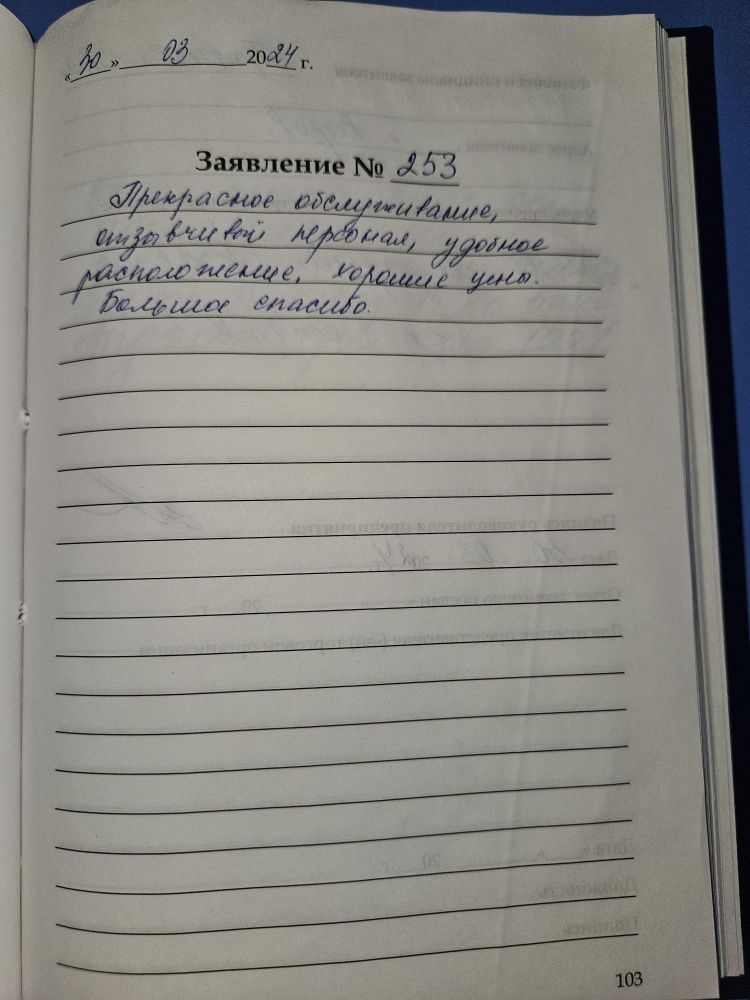 «30» 03 2024 г.
Заявление № 253
Прекрасное обслуживание,
отзывчивый персонал, удобное
расположение, хорошие цены.
Большое спасибо.
103